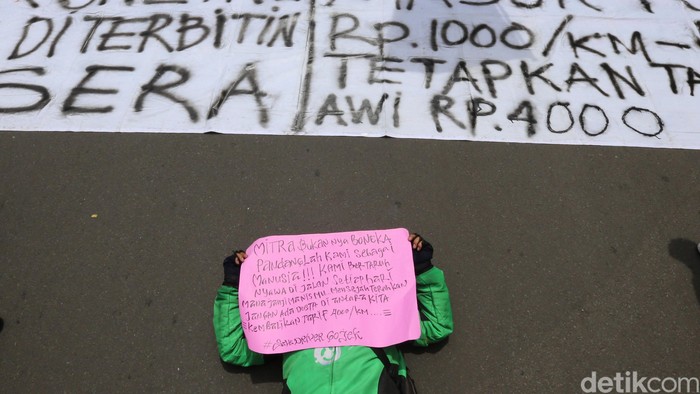 DITERBITIN
SERA
RP.1000/KM-
TETAPKAN TA
AWI RP.4000
MITRA BUKANNYA BONEKA
PANDANGLAH KAMI SEBAGAI
MANUSIA!!! KAMI BERTARUH
NYAWA DI JALAN SETIAP HARI
MANA JANJI MANISMU MENSEJAHTERAKAN
JANGAN ADA DUSTA DI ANTARA KITA
KEMBALIKAN TARIF 4000/KM....
detikcom